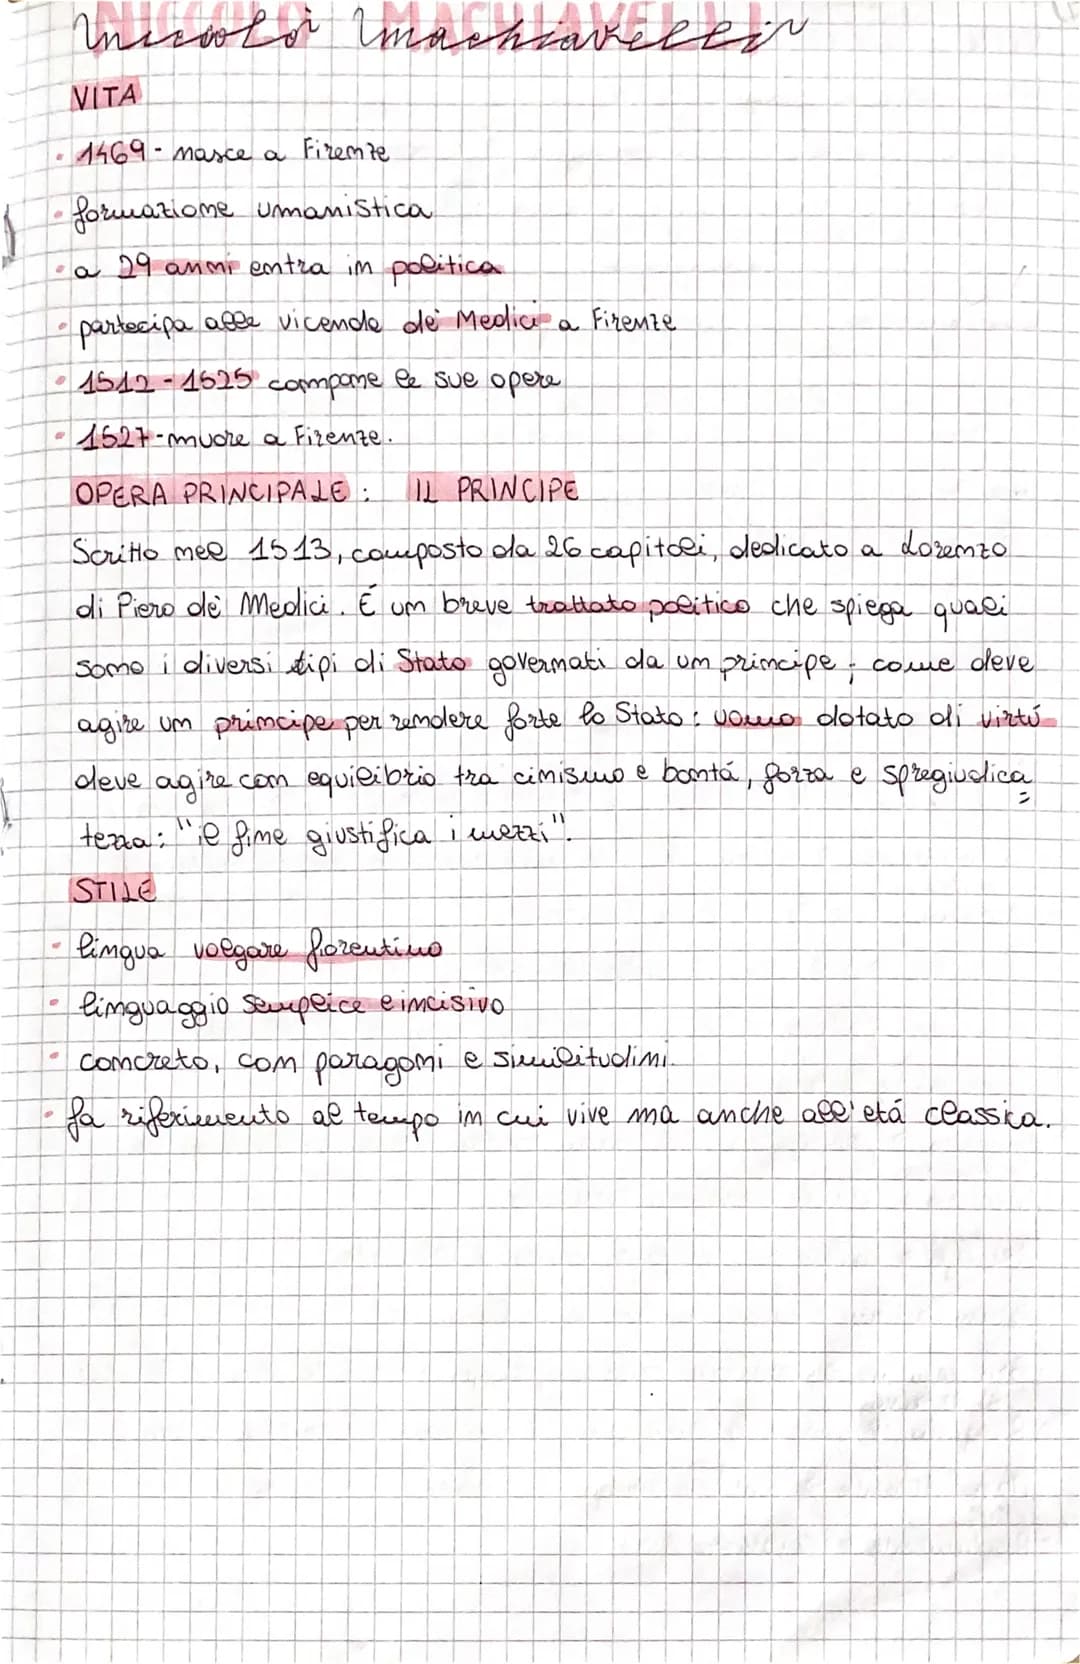 Niccolò Machiavelli
VITA
• 1469 - nasce a Firenze
• formazione umanistica
• a 29 anni entra in politica
• partecipa alle vicende dei Medici a Firenze
• 1512 - 1525 compone le sue opere
• 1527 - muore a Firenze.
OPERA PRINCIPALE : IL PRINCIPE
Scritto nel 1513, composto da 26 capitoli, dedicato a Lorenzo
di Piero dè Medici. É un breve trattato politico che spiega quali
sono i diversi tipi di Stato governati da un principe ; come deve
agire un principe per rendere forte lo Stato : uomo dotato di virtú
deve agire con equilibrio tra cinismo e bontá, forza e spregiudica=
tezza : "il fine giustifica i mezzi".
STILE
• lingua volgare fiorentino
• linguaggio semplice e incisivo
• concreto, con paragoni e similitudini.
• fa riferimento al tempo in cui vive ma anche all'etá classica.